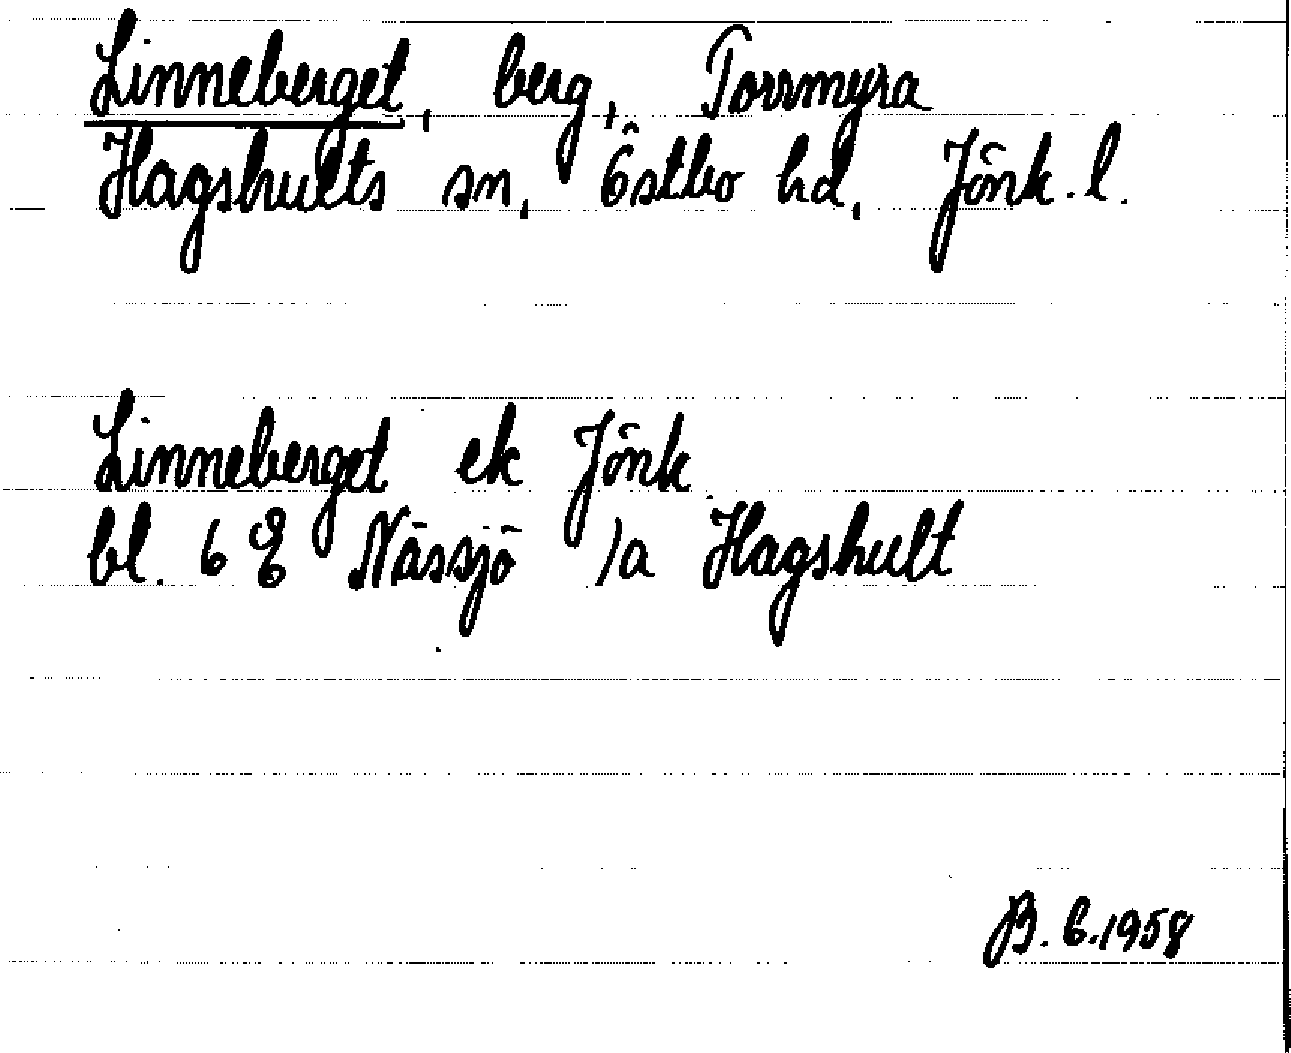 Linneberget, berg, Torrmyra
Hagshults sn, Östbo hd, Jönk. l.
Linneberget ek Jönk
bl. 6 E Nässjö /a Hagshult
B. E. 1958